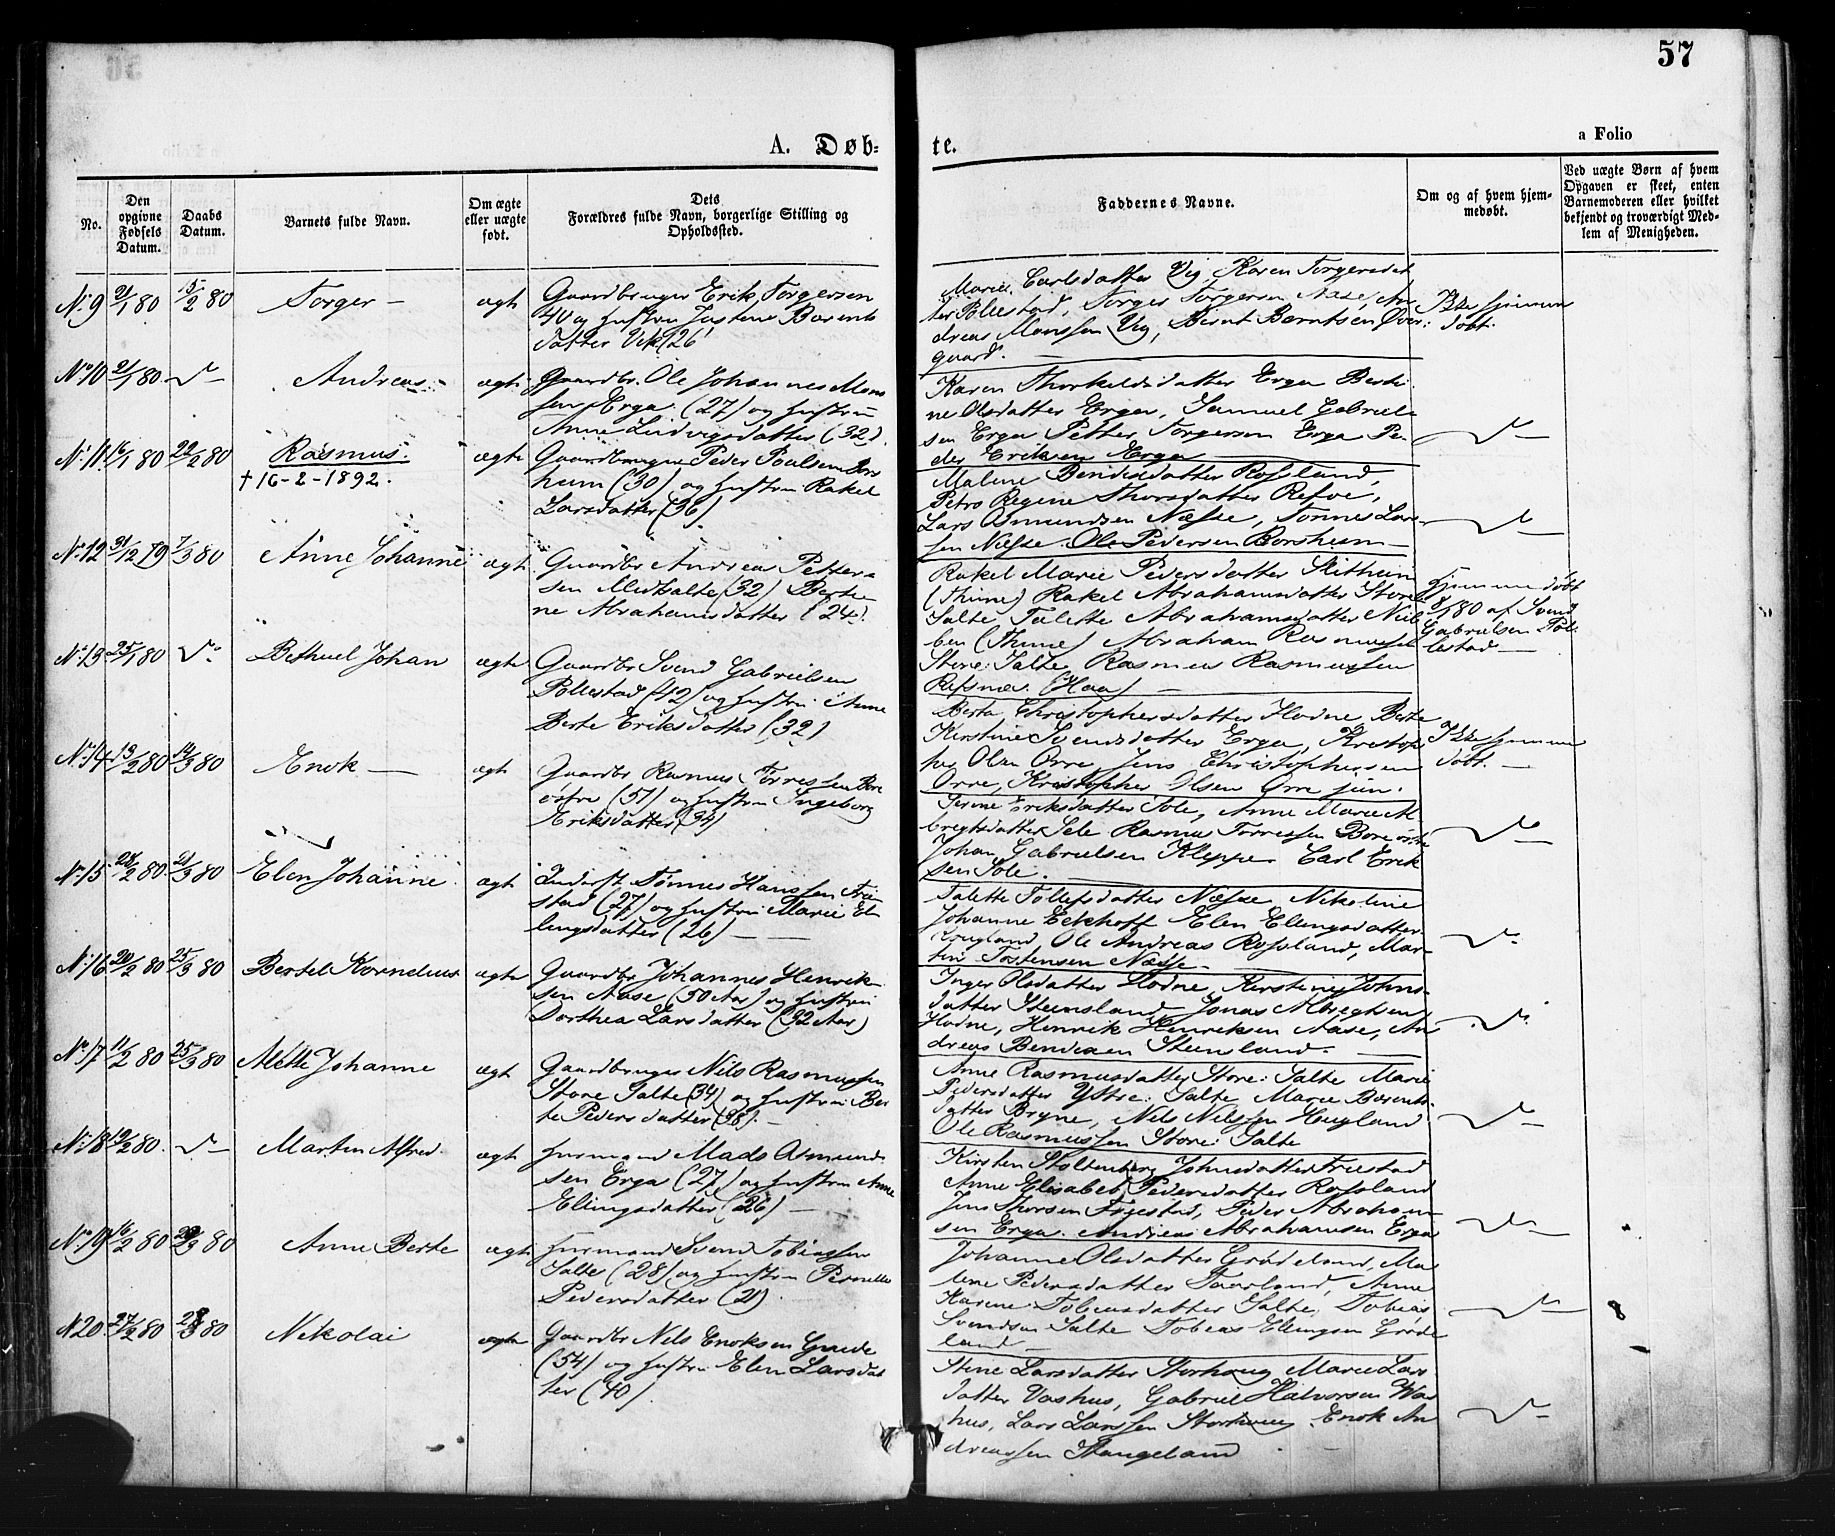 57
A. Døb-
te.
a Folio
No.
Den opgivne Fødsels Datum.
Daabs Datum.
Barnets fulde Navn.
Om ægte eller uægte født.
Dets Forældres fulde Navn, borgerlige Stilling og Opholdssted.
Faddernes Navne.
Om og af hvem hjemmedøbt.
Ved uægte Børn af hvem Opgaven er skeet, enten Barnemoderen eller hvilket bekjendt og troværdigt Medlem af Menigheden.
No 9 2/1 80 15/2 80 Torger – ægt
Gaardbruger Erik Torgersen
40 og Hustru Justene Barents
datter Vik (26)
Marie Carlsdatter Vig, Karen Torgersdat
ter Pollestad, Torger Torgersen Aase, An
dreas Monssen Vig, Bernt Berntsen Over:
gaard.
Ikke hjemme
døbt.
No 10 2/1 80 Andreas – ægt
Gaardbr. Ole Johannes Mons
sen Erga (27) og Hustru
Anne Ludvigsdatter (32).
Karen Thorkeldsdatter Erga Berti
ne Olsdatter Erga, Samuel Gabriel
sen Erga Petter Torgersen Erga Pe-
der Eriksen Erga
No 11 16/1 80 22/2 80 Rasmus. ægte
† 16-2-1892.
Gaardbruger Peder Poulsen Bors
heim (30) og Hustru Rakel
Larsdatter (36)
Malene Bendixdatter Rossland,
Petro Regine Thorsdatter Refve,
Lars Asmundsen Næsse, Tonnes Lar-
sen Næsse. Ole Pedersen Borsheim
No 12 31/12 79 7/3 80 Anne Johanne ægt
Gaardbr Andreas Petter-
sen Medsalte (32) Berte
ne Abrahamsdatter (24).
Rakel Marie Pedersdatter Skitheim
(Thime) Rakel Abrahamsdatter Store
Salte, Talette Abrahamsdatter Niel
ben (Thime) Abraham Rasmussen
Store: Salte Rasmus Rasmussen
Refsnes (Haa)
Hjemmedøbt
/1 80 af Svend
Gabrielsen Pol
lestad
No 13 25/1 80 Bethuel Johan ægt
Gaardbr Svend Gabrielsen
Pollestad (42) og Hustru Anne
Berte Eriksdatter (32)
Berta Christophersdatter Hodne Berte
Kirstine Svendsdatter Erga, Kristop
her Olsen Orre, Jens Christophersen
Orre, Kristopher Olsen Orre jun.
Ikke hjemme
døbt.
No 14 13/2 80 14/3 80 Enok ægt
Gaardbr Rasmus Torressen Bore
østre (51) og Hustru Ingeborg
Eriksdatter (39)
Serine Eriksdatter Sole, Anne Marie Al
bregtsdatter Sele Rasmus Torressen Bore østre
Johan Gabrielsen Kleppe Carl Erik
sen Sole.
No 15 28/2 80 21/3 80 Elen Johanne ægt
Inderst Tønnes Hanssen Frø
stad (27) og Hustru Marie El
lingsdatter (26)
Talette Tollefsdatter Næsse Nikoline
Johanne Eckhoff Elen Elingsdatter
Ole Andreas Rossland, Mar-
tin Tostensen Næsse
No 16 20/2 80 25/3 80 Bertel Kornelius ægt
Gaardbr Johannes Henrik-
sen Aase (50 Aar) og Hustru
Dorthea Larsdatter (32 Aar)
Inger Olsdatter Hodne, Kirstine Johns-
datter Steensland Jonas Albregtsen
Hodne, Henrik Henriksen Aase, An
dreas Bendixen Steensland.
No 17 11/2 80 25/3 80 Alette Johanne ægt
Gaardbruger Nils Rasmussen
Store Salte (34) og Hustru Ber
te Pedersdatter (38).
Anne Rasmusdatter Store: Salte Marie
Pedersdatter Ydtre: Salte Marie Barents-
datter Bryne, Nils Nilssen Haugland
Ole Rasmussen Store: Salte
No 18 19/2 80. Martin Alfred. ægt
Husmand Mads Asmund
sen Erga (27) og Hustru Anne
Ellingsdatter (26)
Kirsten Stoltenberg Johnsdatter Frøstad
Anne Elisabet Pedersdatter Rossland
Jens Thorsen Frøestad, Peder Abraham
sen Erga. Andreas Abrahamsen Erga
No 19 16/2 80 28/3 80 Anne Berte ægt
Husmand Svend Tobiassen
Salte (28) og Hustru Pernelle
Pedersdatter (21)
Johanne Olsdatter Grødeland, Ma
lene Pedersdatter Taarland, Anne
Karine Tobiasdatter Salte, Tobias
Svendsen Salte Tobias Ellingsen Grøde
land
No 20 27/2 80 28/3 80 Nikolai ægte
Gaardbr Nils Enoksen Grude
(54) og Hustru Elen Larsdat
ter (40)
Stine Larsdatter Storhoug Marie Lars
datter Vashus, Gabriel Halvorsen Was
hus, Lars Larssen Storhoug Enok An
dreassen Stangeland